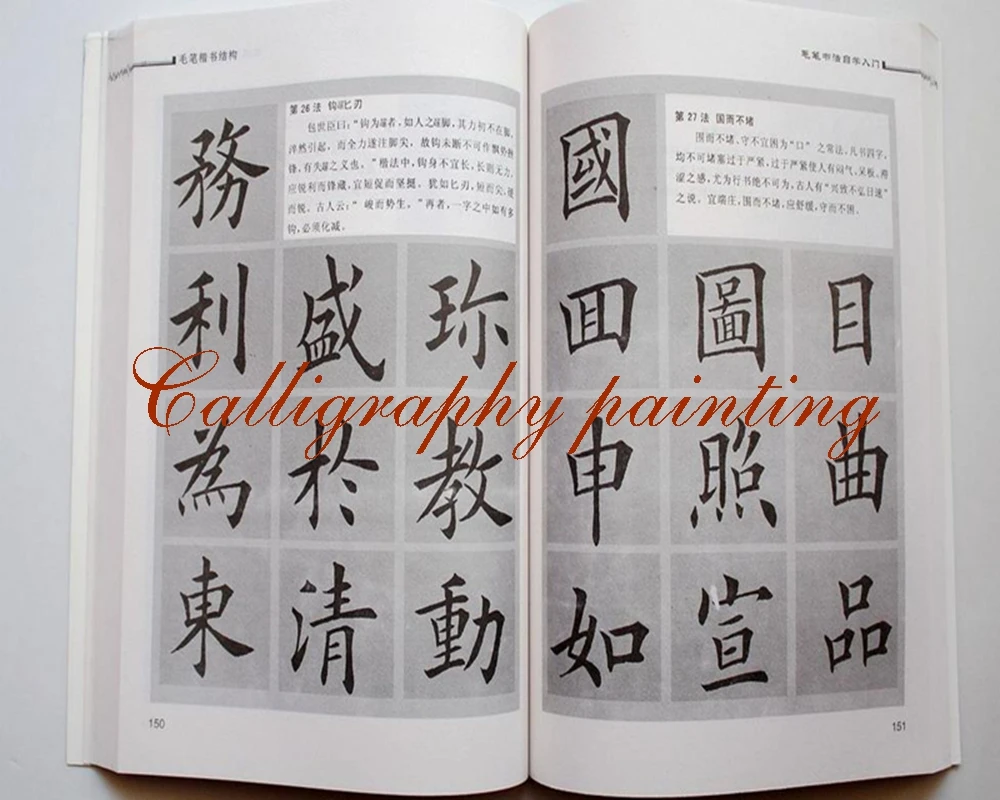 毛笔楷书结构
第26法 钩诓匕刃
包世臣曰:“钩为趯者,如人之趯脚,其力初不在脚,
猝然引起,而全力遂注脚尖,故钩未断不可作飘势挫
锋,有失趯之义也。”楷法中,钩身不宜长,长则无力,
应锐利而锋藏,宜短促而坚挺。犹如匕刃,短而尖,硬
而锐。古人云:“峻而势生。”再者,一字之中如有多
钩,必须化减。
務
利 盛 珎
為 於 教
東 清 動
150
毛笔书法自学入门
第27法 围而不堵
围而不堵、守不宜困为“口”之常法,凡书四字,
均不可堵塞过于严紧,过于严紧使人有闷气、呆板、
涩之感,尤为行书能不可为,古人有“兴致不弘目速”
之说。宜端庄,围而不堵,应舒缓,守而不困。
國
回 圖 目
申 照 曲
如 宣 品
151
Calligraphy painting